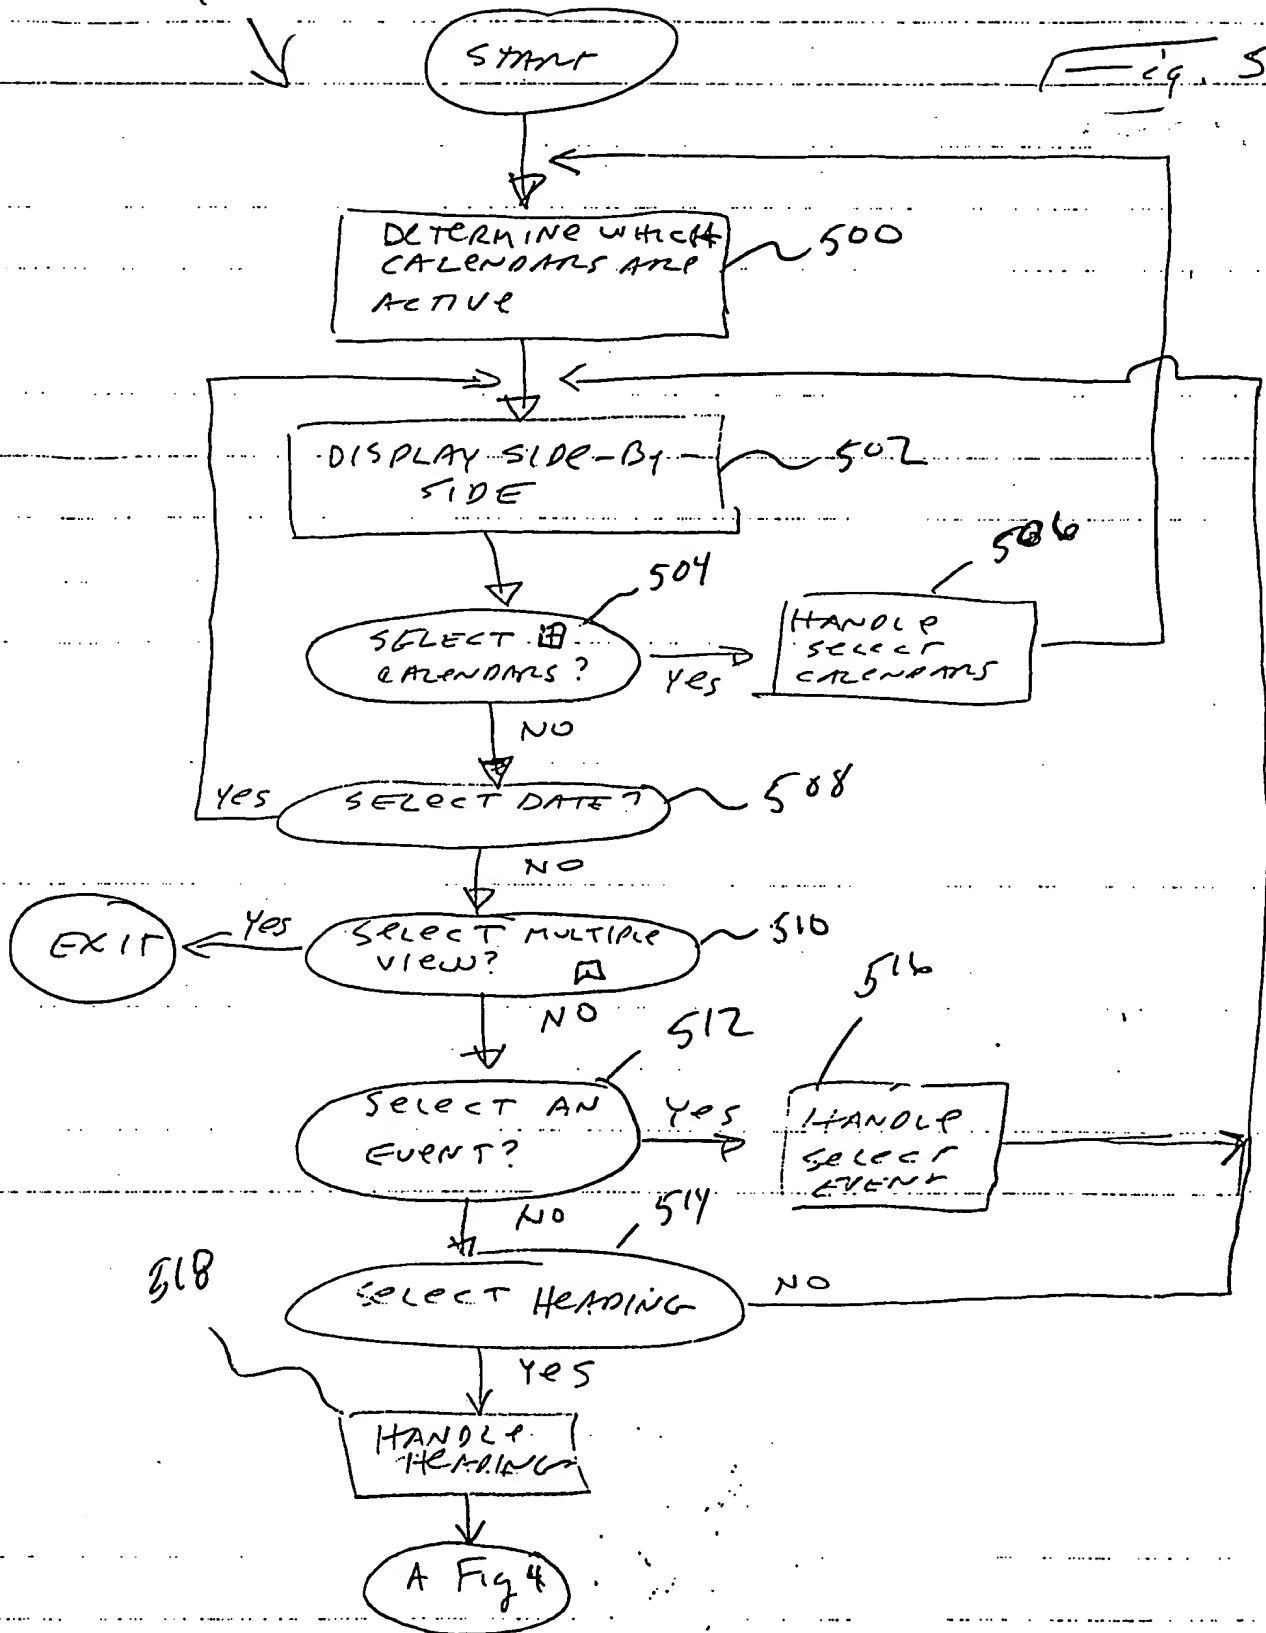 START
Fig. 5
DETERMINE WHICH
CALENDARS ARE
ACTIVE
500
DISPLAY SIDE-BY-
SIDE
502
504
506
SELECT
CALENDARS?
Yes
HANDLE
SELECT
CALENDARS
NO
Yes
SELECT DATE?
508
NO
EXIT
Yes
SELECT MULTIPLE
VIEW?
510
NO
516
512
SELECT AN
EVENT?
Yes
HANDLE
SELECT
EVENT
NO
514
518
SELECT HEADING
NO
Yes
HANDLE
HEADING
A Fig 4